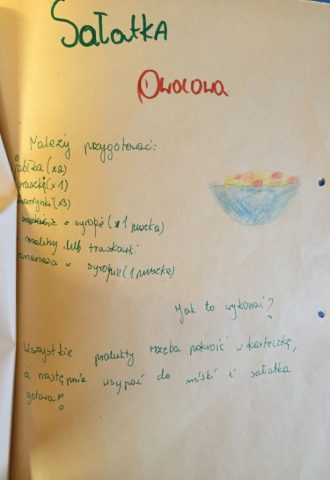 Sałatka
Owocowa
Należy przygotować:
jabłka (x2)
gruszkę (x1)
mandarynki (x3)
w syropie (x1 puszka)
maliny lub truskawki
ananasa w syropie (1 puszka)
Jak to wykonać?
Wszystkie produkty trzeba pokroić w kosteczkę,
a następnie wsypać do miski i sałatka
gotowa!